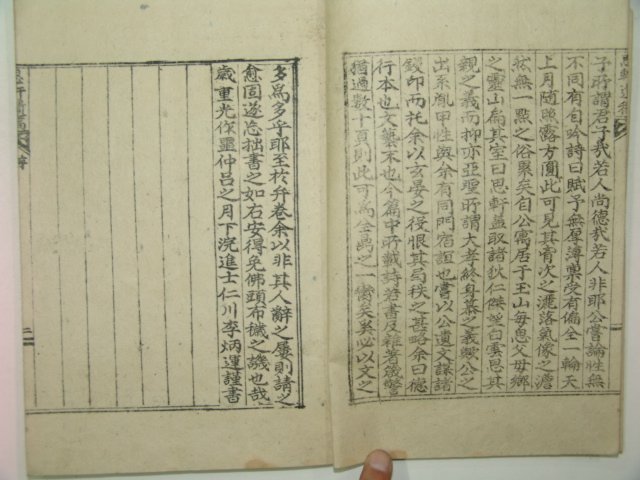 子所謂君子哉若人尚德哉若人非耶公嘗論性無
不同有句吟詩曰賦予無厚薄稟受有偏全一輪天
上月隨照露方圓此可見其胷次之灑落氣像之澹
然無一點之俗累矣自公寓居于玉山每思父母鄉
之靈山扁其室曰思軒蓋取諸狄仁傑望白雲思其
親之義而抑亦亞聖所謂大孝終身慕之義歟公之
出系胤甲性與余有同門宿誼也嘗以公遺文謀諸
鋟印而托余以玄晏之役恨其局秩之甚略余曰德
行本也文藝末也今篇中所載詩若書及雜著箴警
猶過數十頁則此可爲全鼎之一臠矣奚必以文之
多爲多乎耶至於弁卷余以非其人辭之屢則請之
愈固遂忘拙書之如右安得免佛頭布穢之譏也哉
歲重光作噩仲呂之月下浣進士仁川李炳運謹書